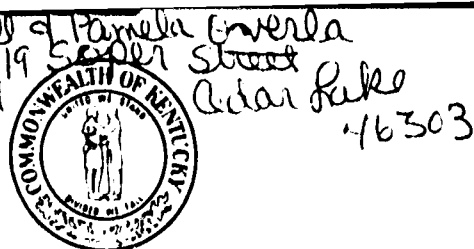 & Pamela
19 Street
Cedar Lake
46303
COMMONWEALTH OF KENTUCKY
UNITED WE STAND
DIVIDED WE FALL